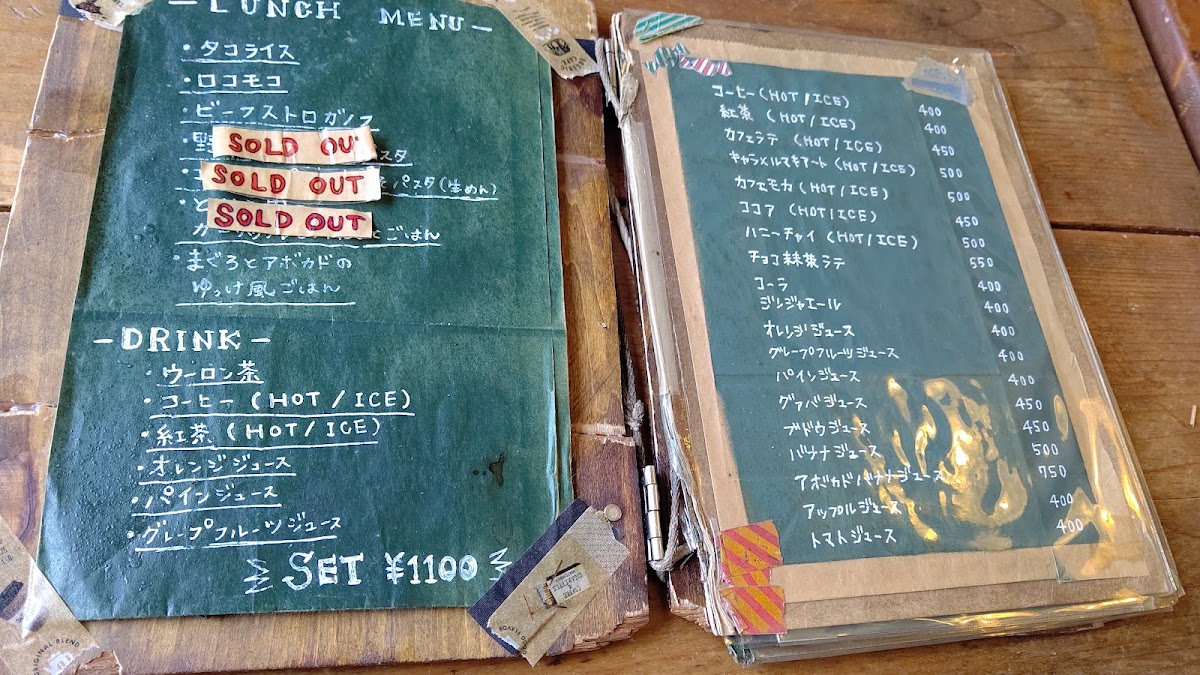 — LUNCH MENU —
・タコライス
・ロコモコ
・ビーフストロガノフ
・野
SOLD OU
スタ
SOLD OUT
パスタ(生めん)
・と
SOLD OUT
ごはん
・まぐろとアボカドの
ゆっけ風ごはん
- DRINK -
・ウーロン茶
・コーヒー (HOT / ICE)
・紅茶 (HOT / ICE)
・オレンジジュース
・パインジュース
・グレープフルーツジュース
SET ¥1100
ORIGINAL BLEND
コーヒー(HOT/ICE) 400
紅茶 (HOT/ICE) 400
カフェラテ (HOT/ICE) 450
キャラメルマキアート(HOT/ICE) 500
カフェモカ(HOT/ICE) 500
ココア (HOT/ICE) 450
ハニーチャイ(HOT/ICE) 500
チョコ抹茶ラテ 550
コーラ 400
ジンジャエール 400
オレンジジュース 400
グレープフルーツジュース 400
パインジュース 400
グァバジュース 450
ブドウジュース 450
バナナジュース 500
アボカドバナナジュース 750
アップルジュース 400
トマトジュース 400